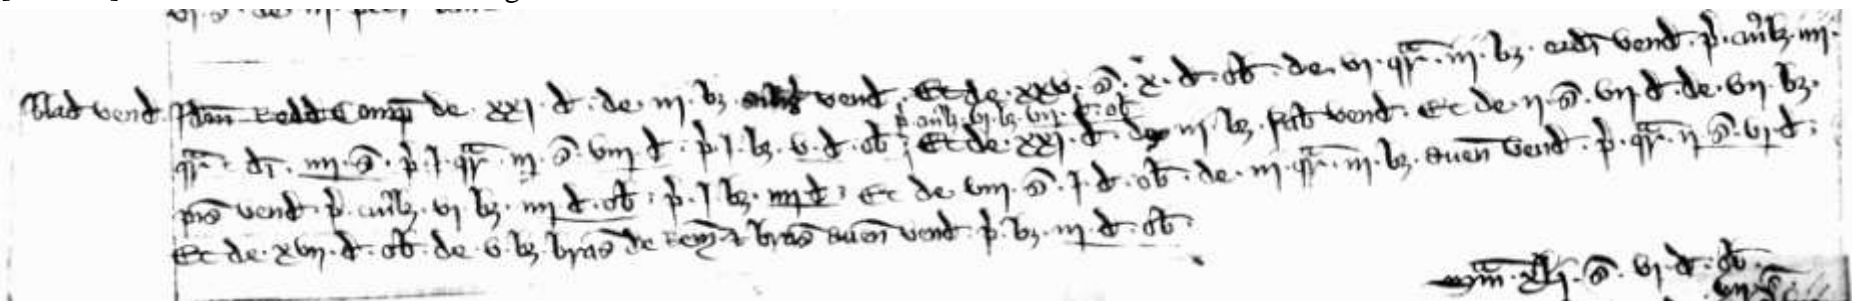 Blad vend. Idem redd Comp de xxj d. de iij bz vend. Et de xxv s. x d. ob. de vj qr. iij bz ordi vend. p. cuilz iiij
p. cuilz vj bz vij d. ob.
qr. di. iiij s. p. j qr. iij s. viij d. p. j bz. v d. ob. Et de xxj d. de iij bz fab vend. Et de ij s. vij d. de vij bz
pis vend. p. cuilz vj bz. iiij d. ob. p. j bz. iiij d. Et de viij s. j d. ob. de iij qr. iij bz. auen vend. p. qr. ij s. vj d.
Et de xvij d. ob. de v bz bras de rem & bras auen vend. p. bz. iij d. ob.
Sm xlj s. vj d. ob.